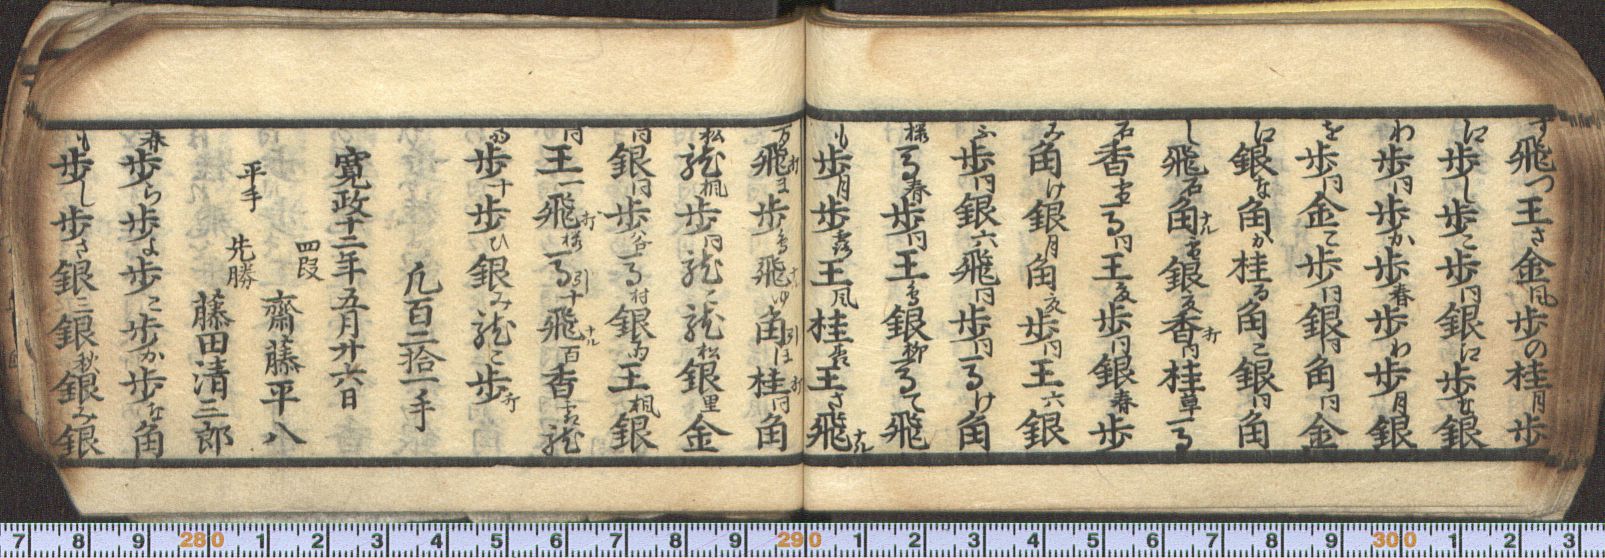 す飛つ王さ金凩歩の桂月歩
江歩し歩こ歩円銀江歩を銀
わ歩円歩か歩春歩わ歩月銀
を歩円金て歩円銀円角円金
江銀な角か桂る角こ銀円角
し飛石角ナル銀香打円桂草馬
石香馬円王歩円銀春歩
み角け銀月角歩円王六銀
ふ歩円銀六飛円歩円馬け角
様馬春歩円王銀柳馬て飛
も歩月歩露王凩桂王さ飛ナル
万飛打ま歩飛ナルゆ角引は桂打円角
松龍楓歩円龍こ龍松銀里金
円銀円歩谷馬村銀王楓銀
円王一飛打様馬引十飛ナル百香龍
歩十歩ひ銀み龍こ歩打
凢百三拾一手
寛政十二年五月廿六日
四段 齋藤平八
平手 先勝 藤田清三郎
春歩ら歩よ歩こ歩か歩な角
も歩し歩さ銀三銀秋銀み銀
7 8 9 280 1 2 3 4 5 6 7 8 9 290 1 2 3 4 5 6 7 8 9 300 1 2 3